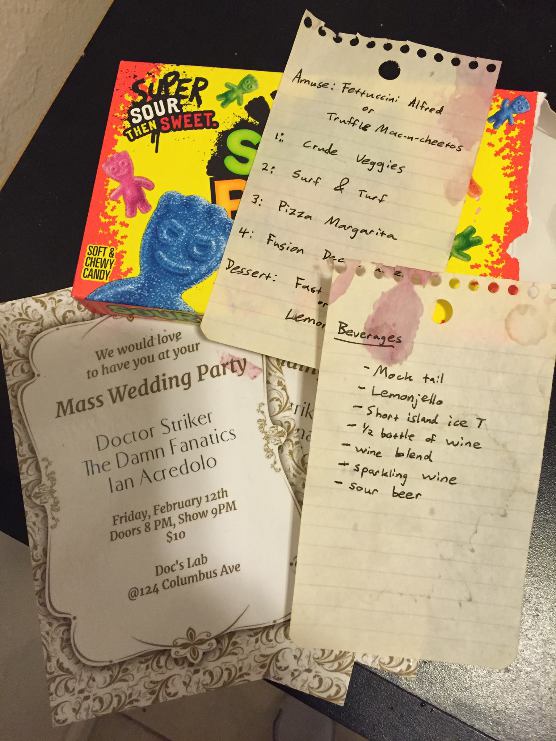 SUPER
SOUR
THEN SWEET.
SOFT &
CHEWY
CANDY
Amuse: Fettuccini Alfred
or
Truffle Mac-n-cheetos
1: Crude Veggies
2: Surf & Turf
3: Pizza Margarita
4: Fusion
Dessert: Fast
or
Beverages
- Mock tail
- Lemonjello
- Short island ice T
- 1/2 bottle of wine
- wine blend
- sparkling wine
- sour beer
We would love
to have you at your
Mass Wedding Party
Doctor Striker
The Damn Fanatics
Ian Acredolo
Friday, February 12th
Doors 8 PM, Show 9PM
$10
Doc's Lab
@124 Columbus Ave